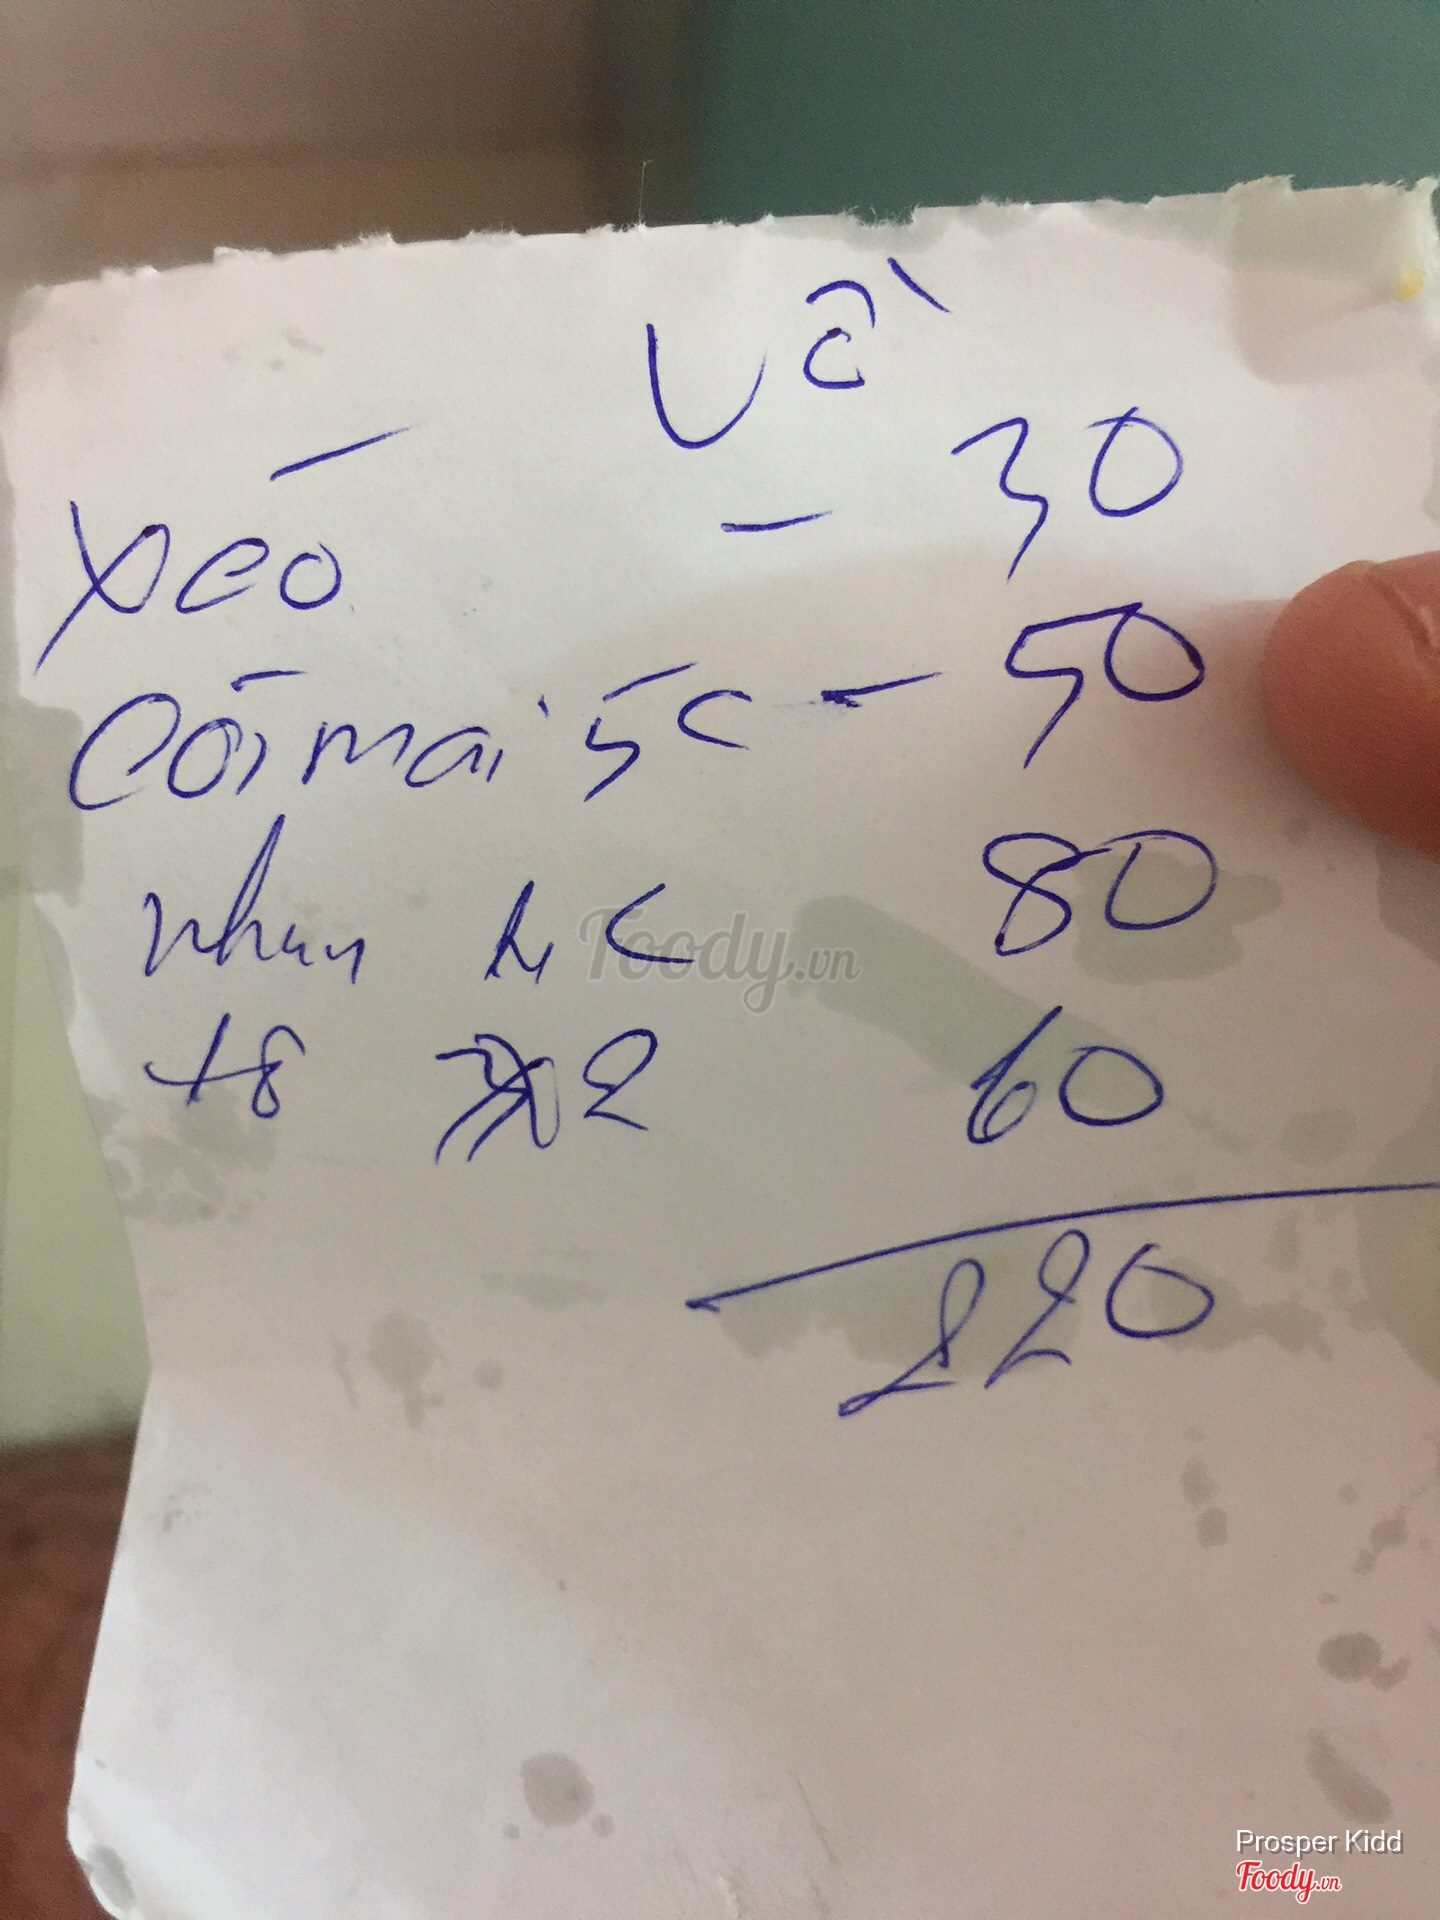 Về
xeó - 30
Còi mai 5c - 50
nhun 4c 80
t8 2 60
220
Foody.vn
Prosper Kidd
Foody.vn